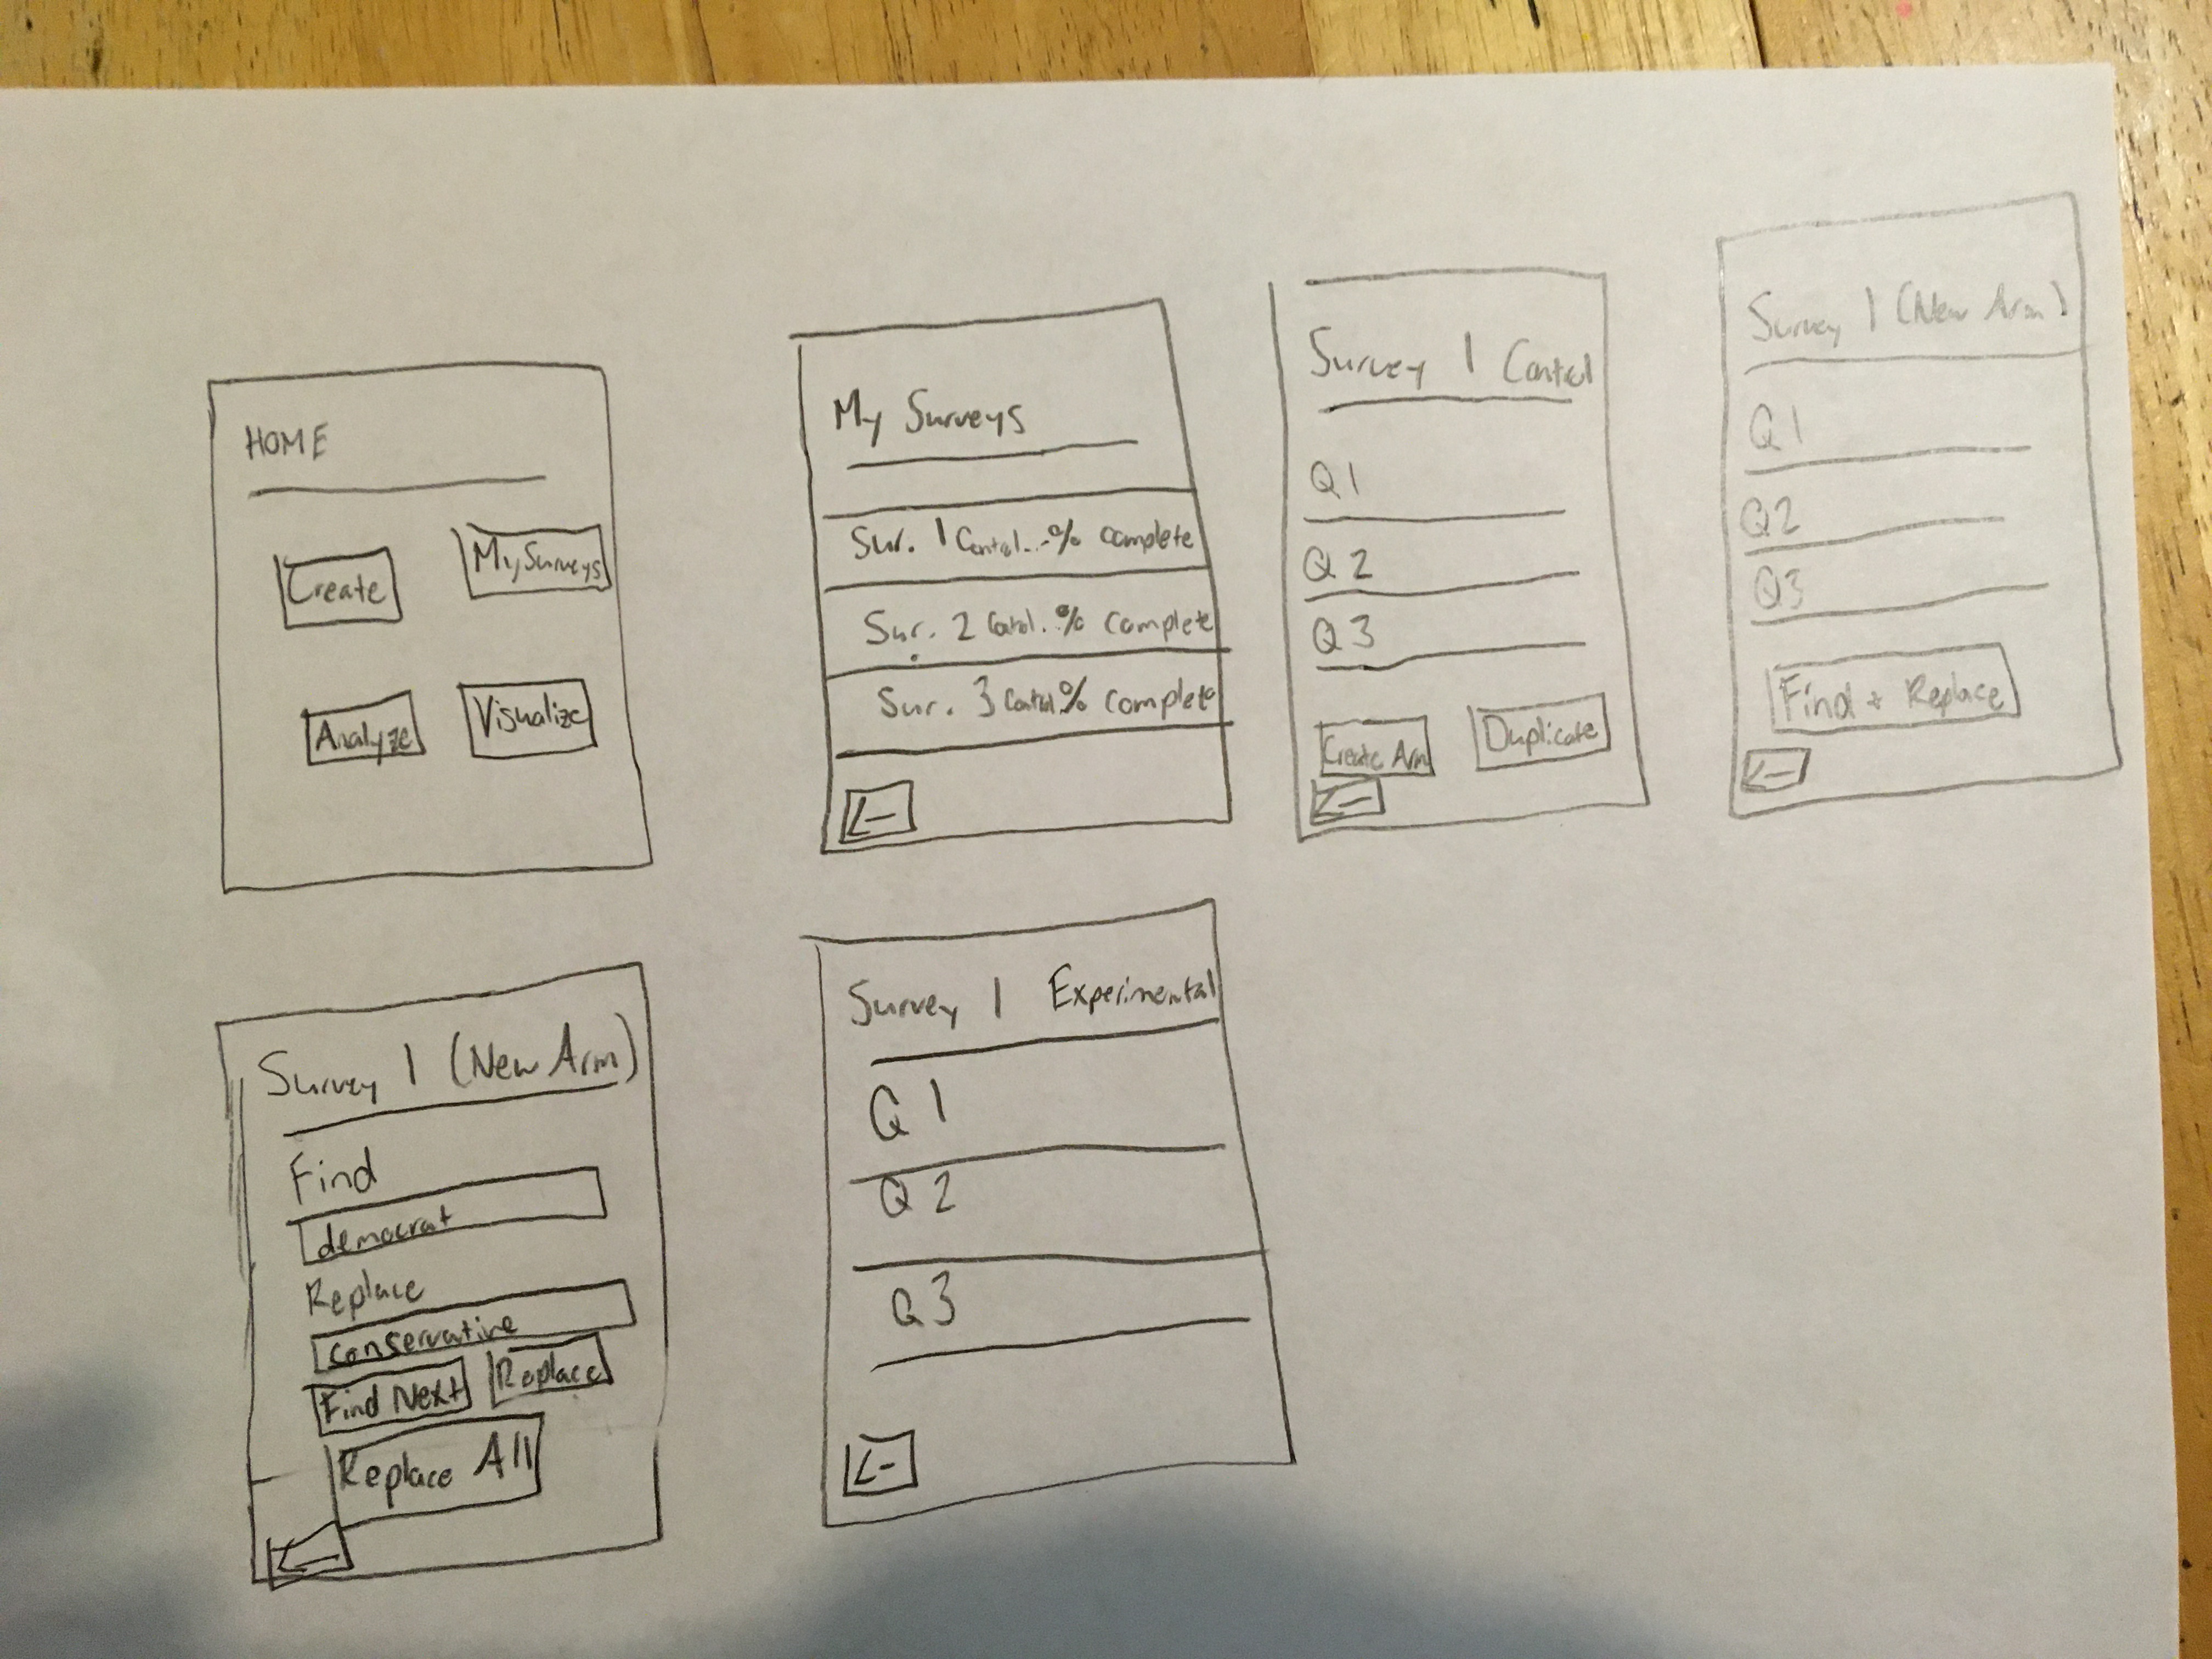 HOME
Create
My Surveys
Analyze
Visualize
My Surveys
Sur. 1 Control...% complete
Sur. 2 Control..% complete
Sur. 3 Control.% complete
←
Survey 1 Control
Q1
Q2
Q3
Create Arm
Duplicate
←
Survey 1 (New Arm)
Q1
Q2
Q3
Find + Replace
←
Survey 1 (New Arm)
Find
democrat
Replace
conservative
Find Next
Replace
Replace All
←
Survey 1 Experimental
Q1
Q2
Q3
←